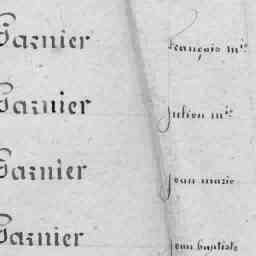 Garnier François mie
Garnier Julien mie
Garnier Jean marie
Garnier Jean baptiste